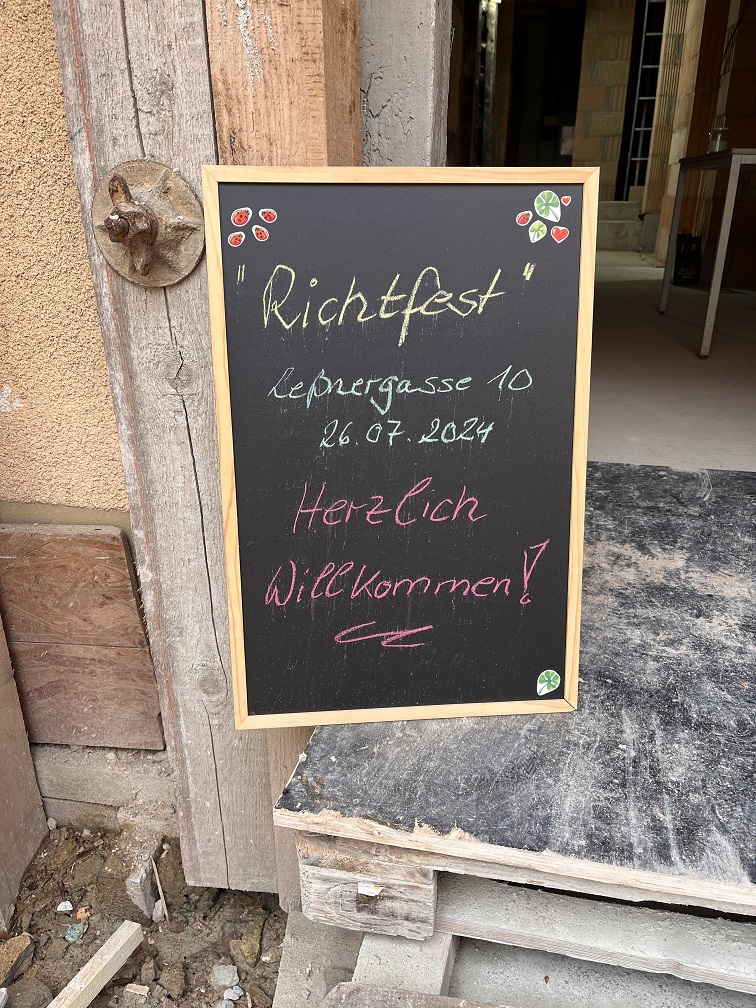 "Richtfest"
Leßnergasse 10
26.07.2024
Herzlich
Willkommen!